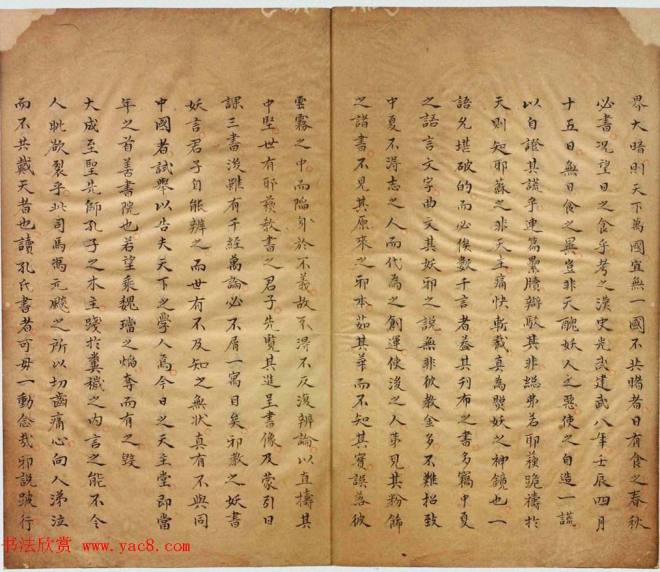 界大暗則天下萬國宜無一國不共暗者日有食之春秋
必書况望日之食乎考之漢史光武建武八年壬辰四月
十五日無日食之異豈非天醜妖人之惡使之自造一謊
以自證其謊乎連篇累牘辯駁其非總弗若耶穌跪禱於
天則知耶蘇之非天主痛快斬截真為照妖之神鏡也一
語允堪破的而必俟數千言者蓋其刋布之書多竊中夏
之語言文字曲文其妖邪之說無非彼教金多不難招致
中夏不得志之人而代為之創運使後之人第見其粉飾
之諸書不見其原來之邪本茹其華而不知其實誤落彼
雲霧之中而陷身於不義故不得不反復辨論以直擣其
中堅世有耶蘓教書之君子先覽其進呈書像及蒙引日
課三書後雖有千經萬論必不屑一寓目矣邪教之妖書
妖言君子自能辨之而世有不及知之無狀真有不與同
中國者試舉以告夫天下之學人焉今日之天主堂即當
年之首善書院也若望乘魏璫之焰奪而有之毀
大成至聖先師孔子之木主踐於糞穢之内言之能不令
人眦欲裂乎此司馬馮元飈之所以切齒痛心向人涕泣
而不共戴天者也讀孔氏書者可毋一動念哉邪說跛行
书法欣赏 www.yac8.com